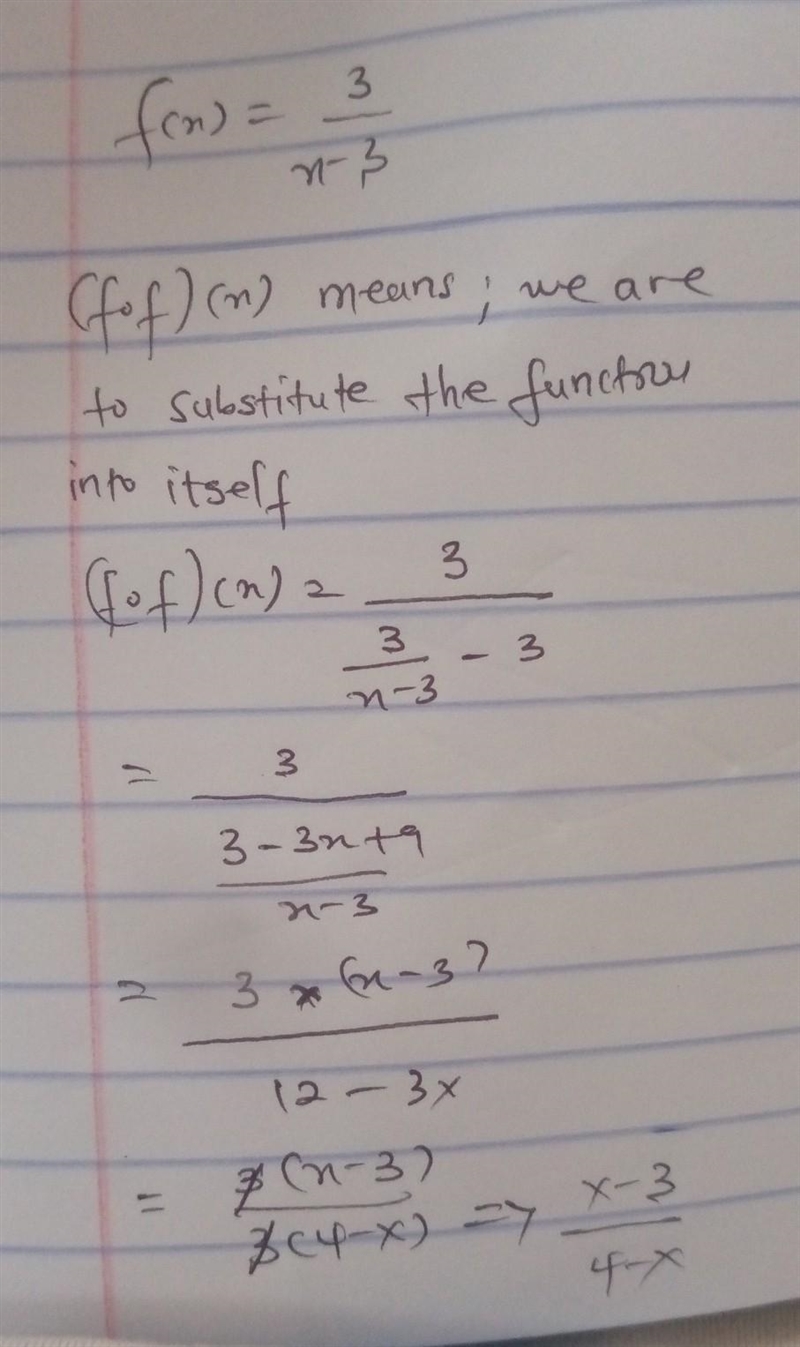 f(x) = 3/(x-3)
(fof)(x) means; we are
to substitute the function
into itself
(fof)(x) = 3/(3/(x-3) - 3)
= 3/((3-3x+9)/(x-3))
= 3*(x-3)/(12-3x)
= 3(x-3)/3(4-x) => (x-3)/(4-x)